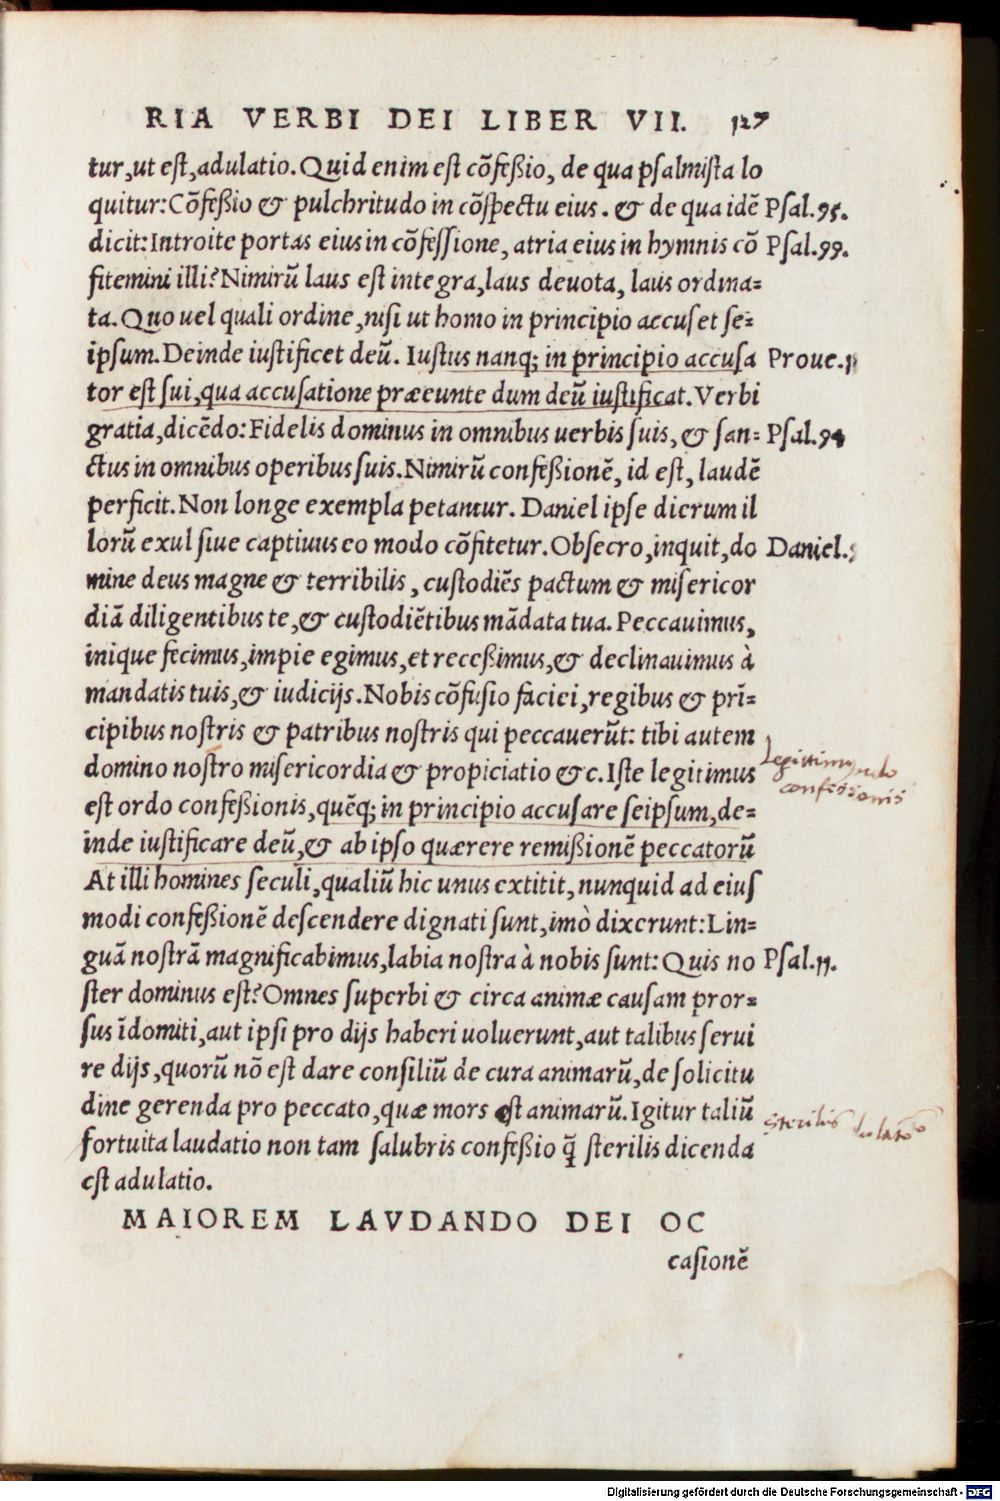 RIA VERBI DEI LIBER VII. 127
tur, ut eſt, adulatio. Quid enim eſt cõfeßio, de qua pſalmiſta lo
quitur: Cõfeßio & pulchritudo in cõſpectu eius. & de qua idẽ Pſal.95.
dicit: Introite portas eius in cõfeſſione, atria eius in hymnis cõ Pſal.99.
fitemini illi? Nimirũ laus eſt integra, laus deuota, laus ordina=
ta. Quo uel quali ordine, niſi ut homo in principio accuſet ſe=
ipſum. Deinde iuſtificet deũ. Iuſtus nanq; in principio accuſa Proue.
tor eſt ſui, qua accuſatione præeunte dum deũ iuſtificat. Verbi
gratia, dicẽdo: Fidelis dominus in omnibus uerbis ſuis, & ſan= Pſal.94
ctus in omnibus operibus ſuis. Nimirũ confeßionẽ, id eſt, laudẽ
perficit. Non longe exempla petantur. Daniel ipſe dierum il
lorũ exul ſiue captiuus eo modo cõfitetur. Obſecro, inquit, do Daniel.
mine deus magne & terribilis, cuſtodiẽs pactum & miſericor
diã diligentibus te, & cuſtodiẽtibus mãdata tua. Peccauimus,
inique fecimus, impie egimus, et receßimus, & declinauimus à
mandatis tuis, & iudicijs. Nobis cõfuſio faciei, regibus & prĩ=
cipibus noſtris & patribus noſtris qui peccauerũt: tibi autem
domino noſtro miſericordia & propiciatio &c. Iſte legitimus
Legittimus ordo
confessionis
eſt ordo confeßionis, quẽq; in principio accuſare ſeipſum, de=
inde iuſtificare deũ, & ab ipſo quærere remißionẽ peccatorũ
At illi homines ſeculi, qualiũ hic unus extitit, nunquid ad eiuſ
modi confeßionẽ deſcendere dignati ſunt, imò dixerunt: Lin=
guã noſtrã magnificabimus, labia noſtra à nobis ſunt: Quis no Pſal.11.
ſter dominus eſt? Omnes ſuperbi & circa animæ cauſam pror=
ſus ĩdomiti, aut ipſi pro dijs haberi uoluerunt, aut talibus ſerui
re dijs, quorũ nõ eſt dare conſiliũ de cura animarũ, de ſolicitu
dine gerenda pro peccato, quæ mors eſt animarũ. Igitur taliũ
Sterilis
fortuita laudatio non tam ſalubris confeßio q̃ ſterilis dicenda
eſt adulatio.
MAIOREM LAVDANDO DEI OC
caſionẽ
Digitalisierung gefördert durch die Deutsche Forschungsgemeinschaft - DFG